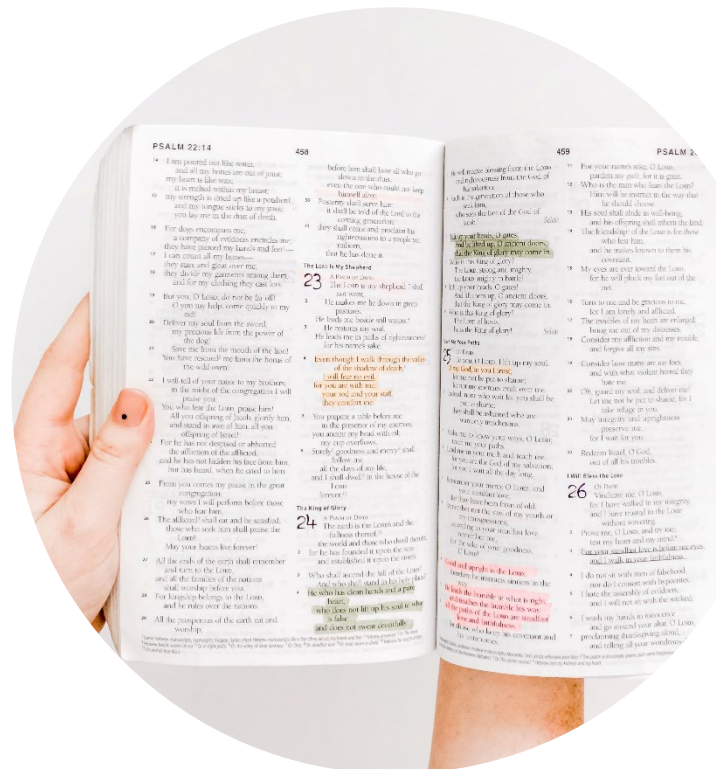 PSALM 22:14
458
14 I am poured out like water,
and all my bones are out of joint;
my heart is like wax;
it is melted within my breast;
15 my strength is dried up like a potsherd,
and my tongue sticks to my jaws;
you lay me in the dust of death.
16 For dogs encompass me;
a company of evildoers encircles me;
they have pierced my hands and feet—
17 I can count all my bones—
they stare and gloat over me;
18 they divide my garments among them,
and for my clothing they cast lots.
19 But you, O LORD, do not be far off!
O you my help, come quickly to my
aid!
20 Deliver my soul from the sword,
my precious life from the power of
the dog!
21 Save me from the mouth of the lion!
You have rescued me from the horns of
the wild oxen!
22 I will tell of your name to my brothers;
in the midst of the congregation I will
praise you:
You who fear the LORD, praise him!
All you offspring of Jacob, glorify him,
and stand in awe of him, all you
offspring of Israel!
For he has not despised or abhorred
the affliction of the afflicted,
and he has not hidden his face from him,
but has heard, when he cried to him.
25 From you comes my praise in the great
congregation;
my vows I will perform before those
who fear him.
26 The afflicted shall eat and be satisfied;
those who seek him shall praise the
LORD!
May your hearts live forever!
27 All the ends of the earth shall remember
and turn to the LORD,
and all the families of the nations
shall worship before you.
28 For kingship belongs to the LORD,
and he rules over the nations.
29 All the prosperous of the earth eat and
worship;
before him shall bow all who go
down to the dust,
even the one who could not keep
himself alive.
30 Posterity shall serve him;
it shall be told of the Lord to the
coming generation;
31 they shall come and proclaim his
righteousness to a people yet
unborn,
that he has done it.
The LORD Is My Shepherd
23 A PSALM OF DAVID.
The LORD is my shepherd; I shall
not want.
2 He makes me lie down in green
pastures.
He leads me beside still waters.
3 He restores my soul.
He leads me in paths of righteousness
for his name's sake.
4 Even though I walk through the valley
of the shadow of death,
I will fear no evil,
for you are with me;
your rod and your staff,
they comfort me.
5 You prepare a table before me
in the presence of my enemies;
you anoint my head with oil;
my cup overflows.
6 Surely goodness and mercy shall
follow me
all the days of my life,
and I shall dwell in the house of the
LORD
forever.
The King of Glory
24 A PSALM OF DAVID.
The earth is the LORD's and the
fullness thereof,
the world and those who dwell therein,
2 for he has founded it upon the seas
and established it upon the rivers.
3 Who shall ascend the hill of the LORD?
And who shall stand in his holy place?
4 He who has clean hands and a pure
heart,
who does not lift up his soul to what
is false
and does not swear deceitfully.
459
PSALM 2
He will receive blessing from the LORD
and righteousness from the God of
his salvation.
is the generation of those who
seek him,
who seek the face of the God of
Selah
up your heads, O gates!
And be lifted up, O ancient doors,
that the King of glory may come in.
is this King of glory?
The LORD, strong and mighty,
the LORD, mighty in battle!
up your heads, O gates!
And lift them up, O ancient doors,
that the King of glory may come in.
is this King of glory?
The LORD of hosts,
he is the King of glory!
Selah
Me Your Paths
25 OF DAVID.
To you, O LORD, I lift up my soul.
O my God, in you I trust;
let me not be put to shame;
let not my enemies exult over me.
none who wait for you shall be
put to shame;
they shall be ashamed who are
wantonly treacherous.
me to know your ways, O LORD;
teach me your paths.
Lead me in your truth and teach me,
for you are the God of my salvation;
for you I wait all the day long.
your mercy, O LORD, and
your steadfast love,
for they have been from of old.
Remember not the sins of my youth or
my transgressions;
according to your steadfast love
remember me,
for the sake of your goodness,
O LORD!
Good and upright is the LORD;
therefore he instructs sinners in the
way.
He leads the humble in what is right,
and teaches the humble his way.
All the paths of the LORD are steadfast
love and faithfulness,
for those who keep his covenant and
his testimonies.
11 For your name's sake, O LORD,
pardon my guilt, for it is great.
12 Who is the man who fears the LORD?
Him will he instruct in the way that
he should choose.
13 His soul shall abide in well-being,
and his offspring shall inherit the land.
14 The friendship of the LORD is for those
who fear him,
and he makes known to them his
covenant.
15 My eyes are ever toward the LORD,
for he will pluck my feet out of the
net.
16 Turn to me and be gracious to me,
for I am lonely and afflicted.
17 The troubles of my heart are enlarged;
bring me out of my distresses.
18 Consider my affliction and my trouble,
and forgive all my sins.
19 Consider how many are my foes,
and with what violent hatred they
hate me.
20 Oh, guard my soul, and deliver me!
Let me not be put to shame, for I
take refuge in you.
21 May integrity and uprightness
preserve me,
for I wait for you.
22 Redeem Israel, O God,
out of all his troubles.
I Will Bless the LORD
26 OF DAVID.
Vindicate me, O LORD,
for I have walked in my integrity,
and I have trusted in the LORD
without wavering.
2 Prove me, O LORD, and try me;
test my heart and my mind.
3 For your steadfast love is before my eyes,
and I walk in your faithfulness.
4 I do not sit with men of falsehood,
nor do I consort with hypocrites.
I hate the assembly of evildoers,
and I will not sit with the wicked.
I wash my hands in innocence
and go around your altar, O LORD,
proclaiming thanksgiving aloud,
and telling all your wondrous